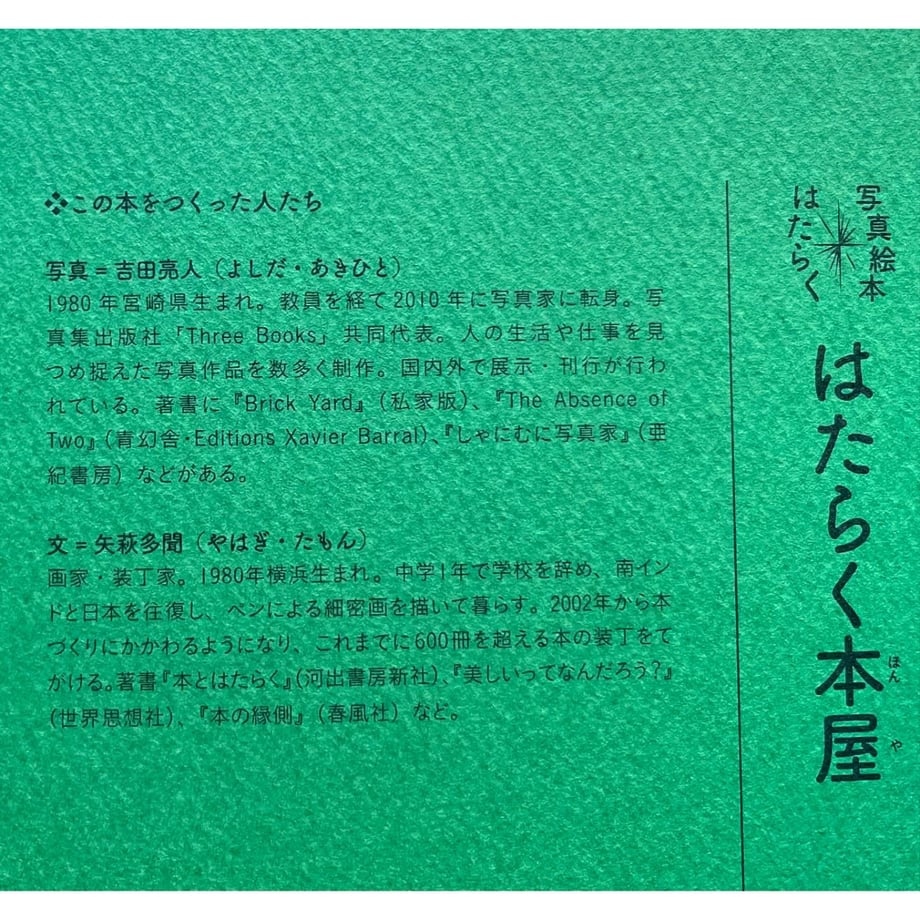 ❖この本をつくった人たち
写真＝吉田亮人（よしだ・あきひと）
1980年宮崎県生まれ。教員を経て2010年に写真家に転身。写
真集出版社「Three Books」共同代表。人の生活や仕事を見
つめ捉えた写真作品を数多く制作。国内外で展示・刊行が行わ
れている。著書に『Brick Yard』（私家版）、『The Absence of
Two』（青幻舎・Editions Xavier Barral）、『しゃにむに写真家』（亜
紀書房）などがある。
文＝矢萩多聞（やはぎ・たもん）
画家・装丁家。1980年横浜生まれ。中学1年で学校を辞め、南イン
ドと日本を往復し、ペンによる細密画を描いて暮らす。2002年から本
づくりにかかわるようになり、これまでに600冊を超える本の装丁をて
がける。著書『本とはたらく』（河出書房新社）、『美しいってなんだろう？』
（世界思想社）、『本の縁側』（春風社）など。
写真絵本
はたらく
はたらく本屋
ほん
や